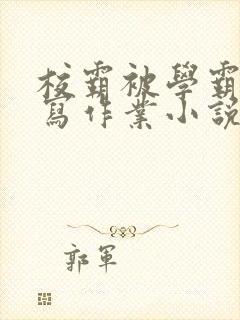 校霸被學霸
寫作業小說
郭軍